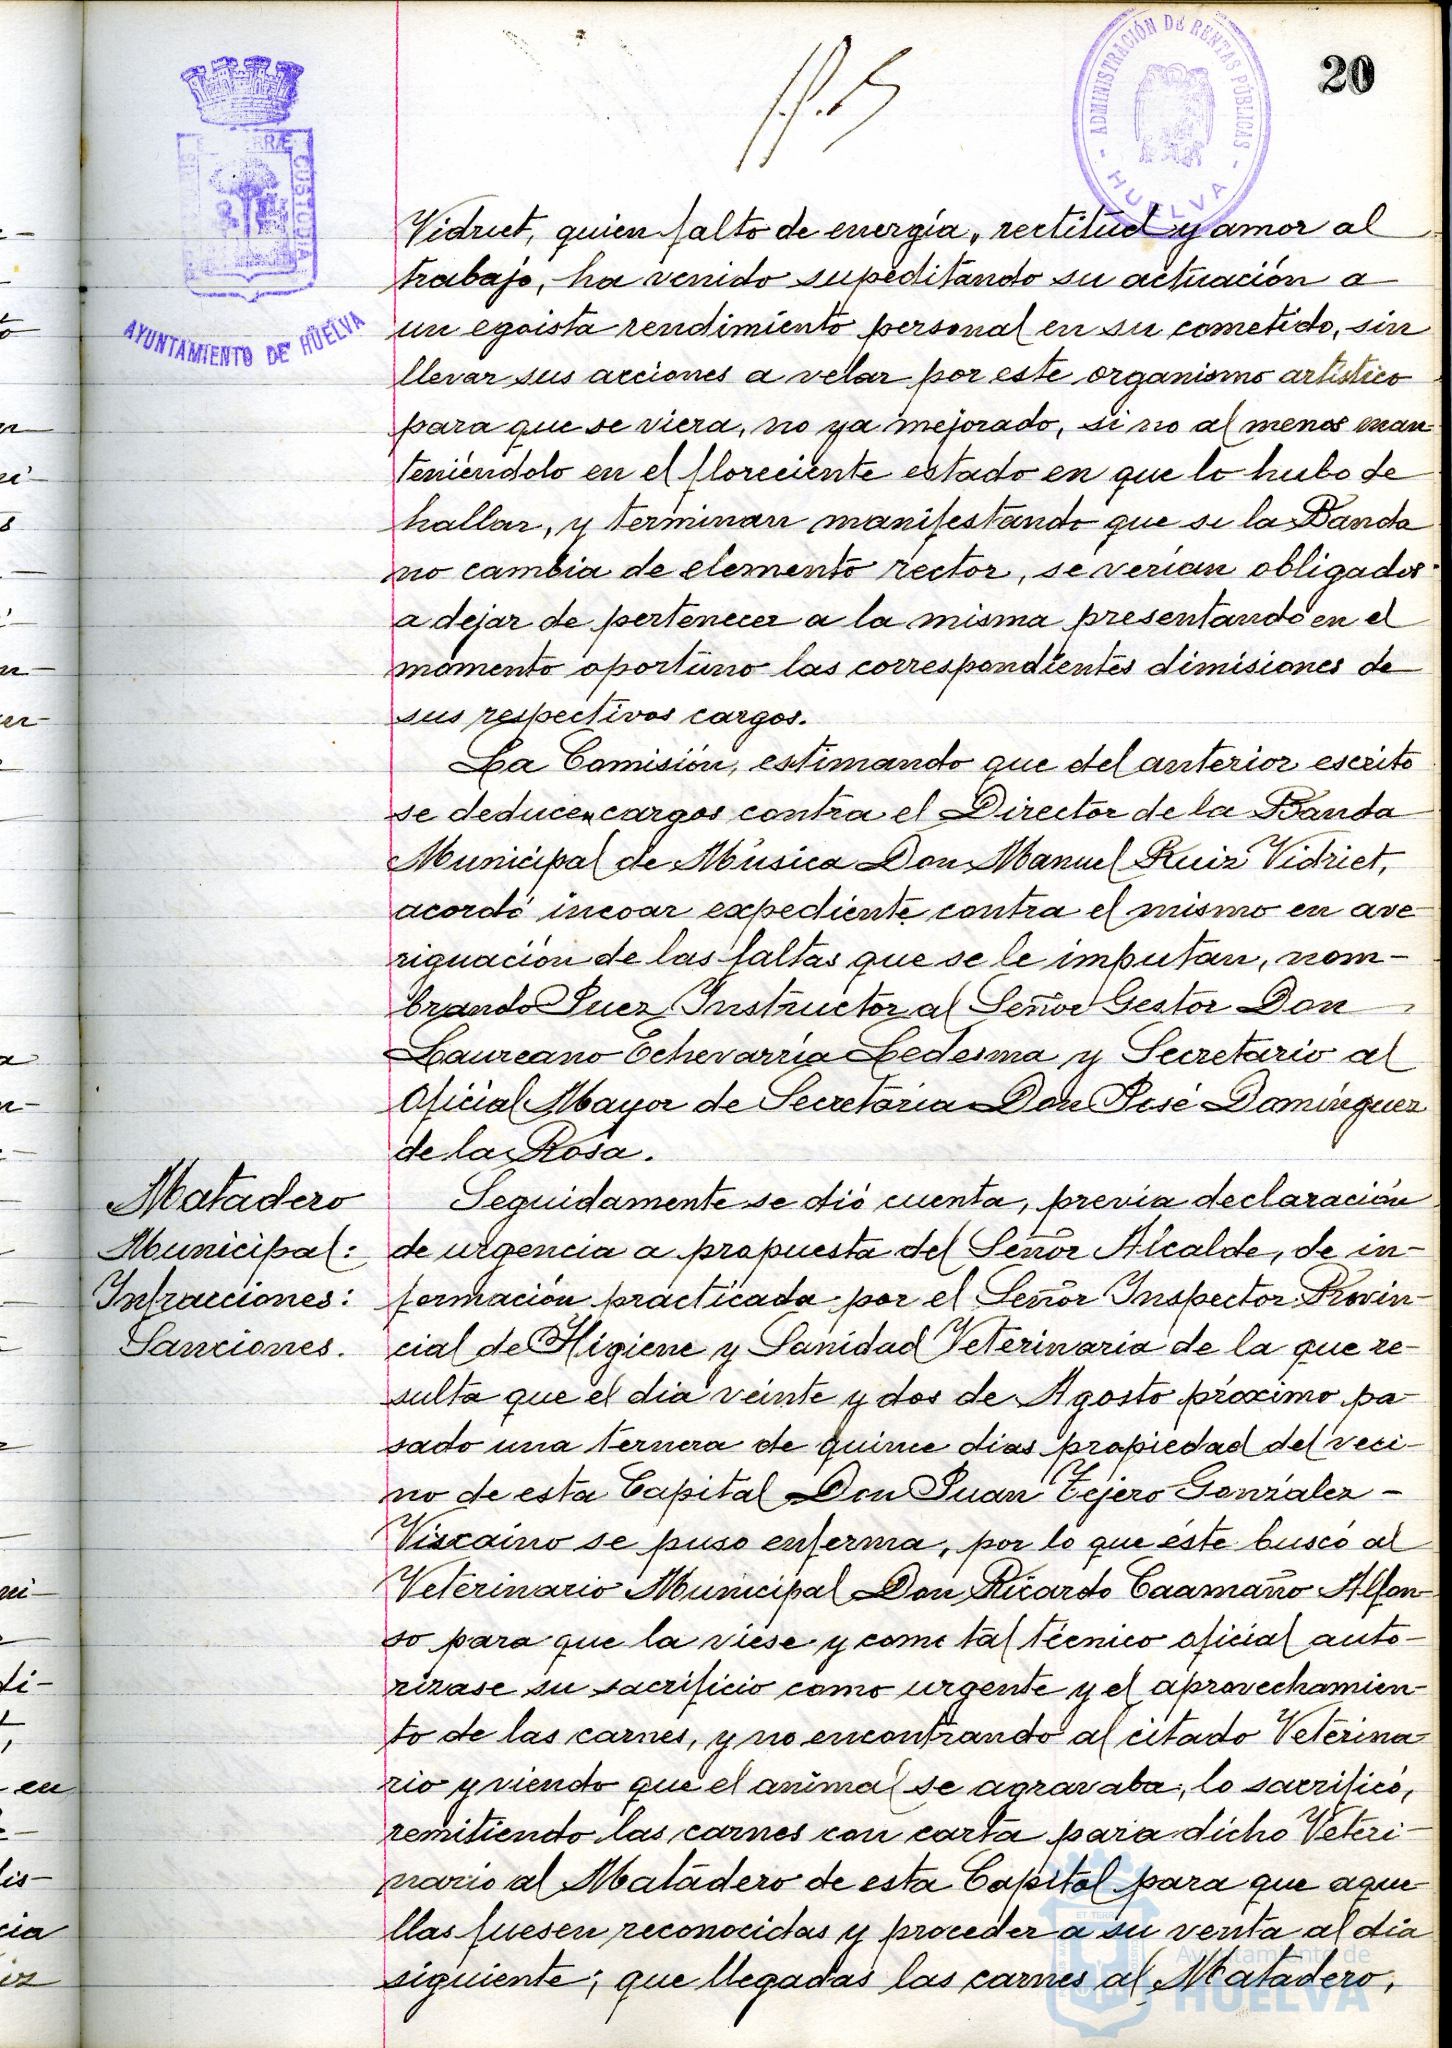 20
ADMINISTRACIÓN DE RENTAS PÚBLICAS
- HUELVA -
TERRÆ CUSTODIA
AYUNTAMIENTO DE HUELVA
Vidriet, quien falto de energía, rectitud y amor al
trabajo, ha venido supeditando su actuación a
un egoista rendimiento personal en su cometido, sin
llevar sus acciones a velar por este organismo artístico
para que se viera, no ya mejorado, si no al menos man-
teniéndolo en el floreciente estado en que lo hubo de
hallar, y terminan manifestando que si la Banda
no cambia de elemento rector, se verían obligados
a dejar de pertenecer a la misma presentando en el
momento oportuno las correspondientes dimisiones de
sus respectivos cargos.
La Comisión, estimando que del anterior escrito
se deducen cargos contra el Director de la Banda
Municipal de Música Don Manuel Ruiz Vidriet,
acordó incoar expediente contra el mismo en ave-
riguación de las faltas que se le imputan, nom-
brando Juez Instructor al Señor Gestor Don
Laureano Echevarría Ledesma y Secretario al
Oficial Mayor de Secretaria Don José Domínguez
de la Rosa.
Matadero
Municipal:
Infracciones:
Sanciones.
Seguidamente se dió cuenta, previa declaración
de urgencia a propuesta del Señor Alcalde, de in-
formación practicada por el Señor Inspector Provin-
cial de Higiene y Sanidad Veterinaria de la que re-
sulta que el dia veinte y dos de Agosto próximo pa-
sado una ternera de quince dias propiedad del veci-
no de esta Capital Don Juan Tejero González-
Viscaino se puso enferma, por lo que éste buscó al
Veterinario Municipal Don Ricardo Caamaño Alfon-
so para que la viese y como tal técnico oficial auto-
rizase su sacrificio como urgente y el aprovechamien-
to de las carnes, y no encontrando al citado Veterina-
rio y viendo que el animal se agravaba, lo sacrificó,
remitiendo las carnes con carta para dicho Veteri-
nario al Matadero de esta Capital para que aque-
llas fuesen reconocidas y proceder a su venta al dia
siguiente; que llegadas las carnes al Matadero,
Ayuntamiento de
HUELVA